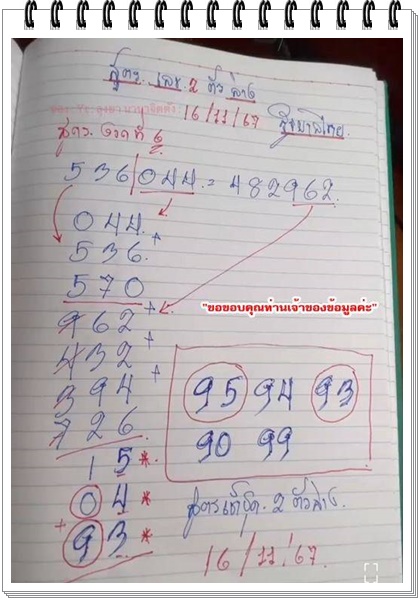 สูตร. เลข. 2 ตัว ล่าง
16/11/67
รัฐบาลไทย.
สูตร. งวดที่ 6
536|044 = 482962
044.
536. +
570
"ขอขอบคุณท่านเจ้าของข้อมูลค่ะ"
962 +
432 +
394 +
726
95 94 93
90 99
15*
04*
+ 93*
2 ตัวล่าง.
16/11/67